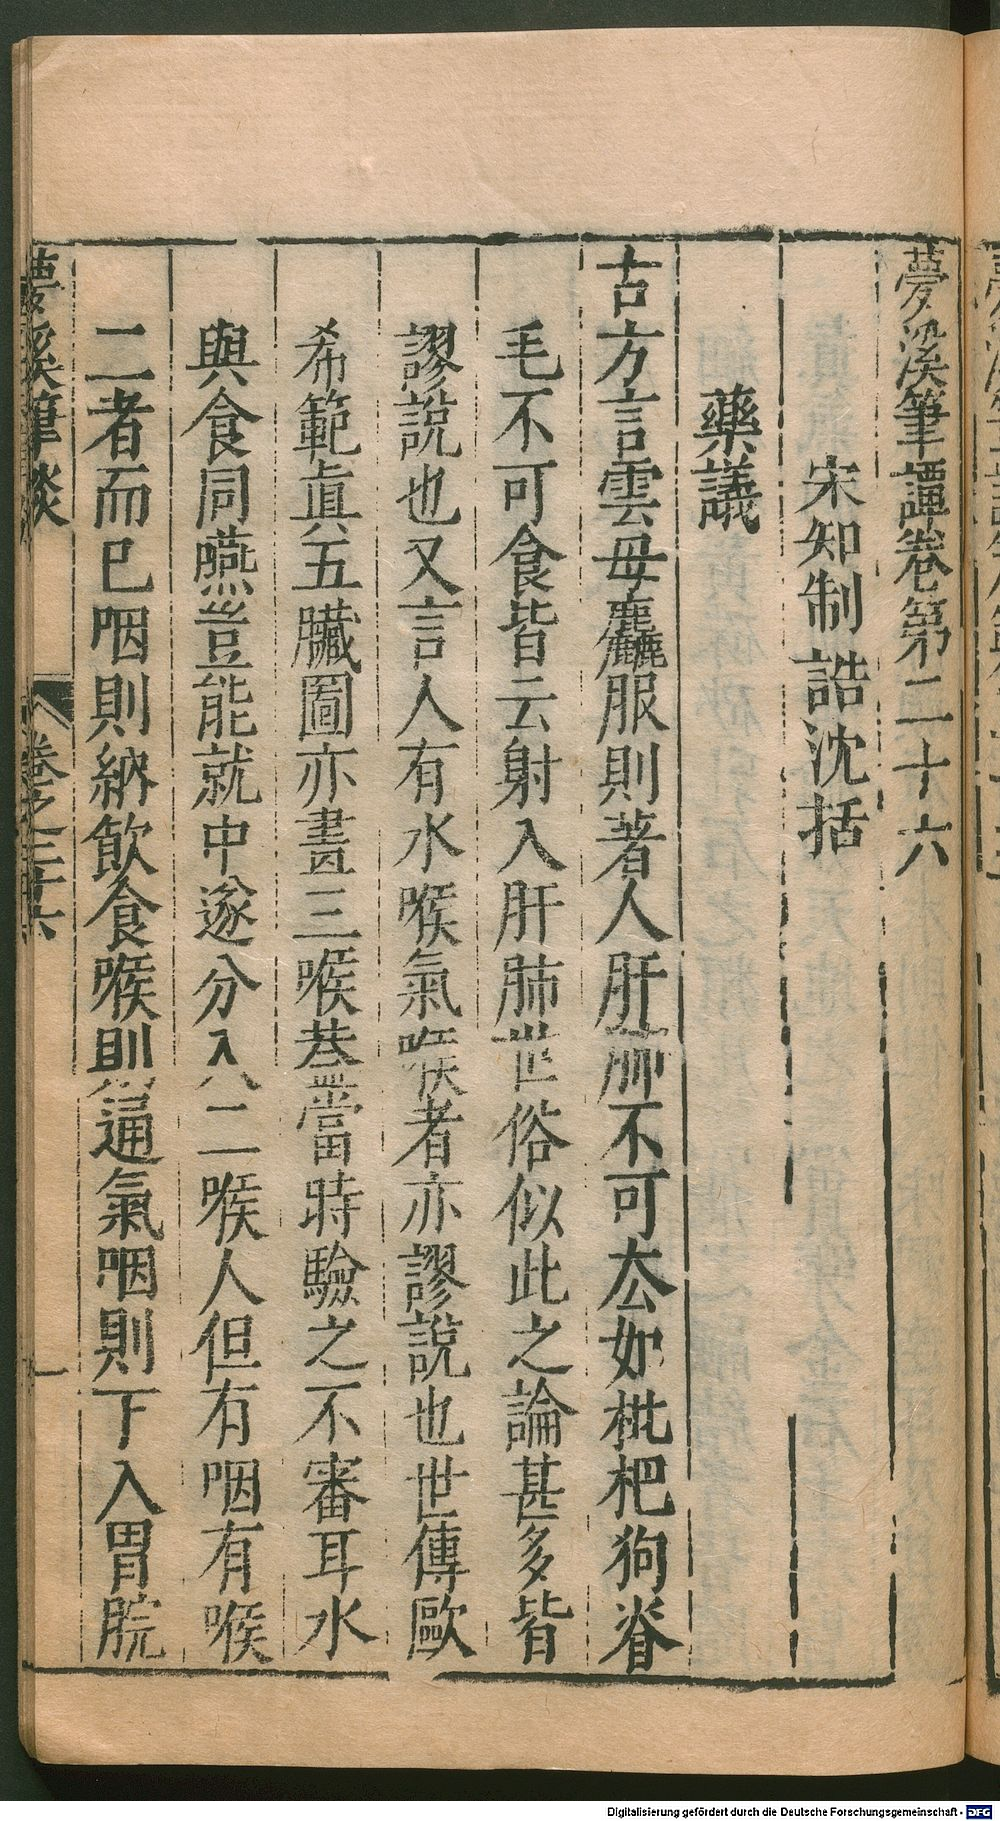 夢溪筆譚卷第二十六
宋知制誥沈括
藥議
古方言雲母麤服則著人肝肺不可厺如枇杷狗脊
毛不可食皆云射入肝肺世俗似此之論甚多皆
謬說也又言人有水喉氣喉者亦謬說也世傳歐
希範眞五臟圖亦畫三喉葢當時驗之不審耳水
與食同嚥豈能就中遂分入二喉人但有咽有喉
二者而已咽則納飲食喉則通氣咽則下入胃脘
夢溪筆談 卷之二十六 一
Digitalisierung gefördert durch die Deutsche Forschungsgemeinschaft - DFG